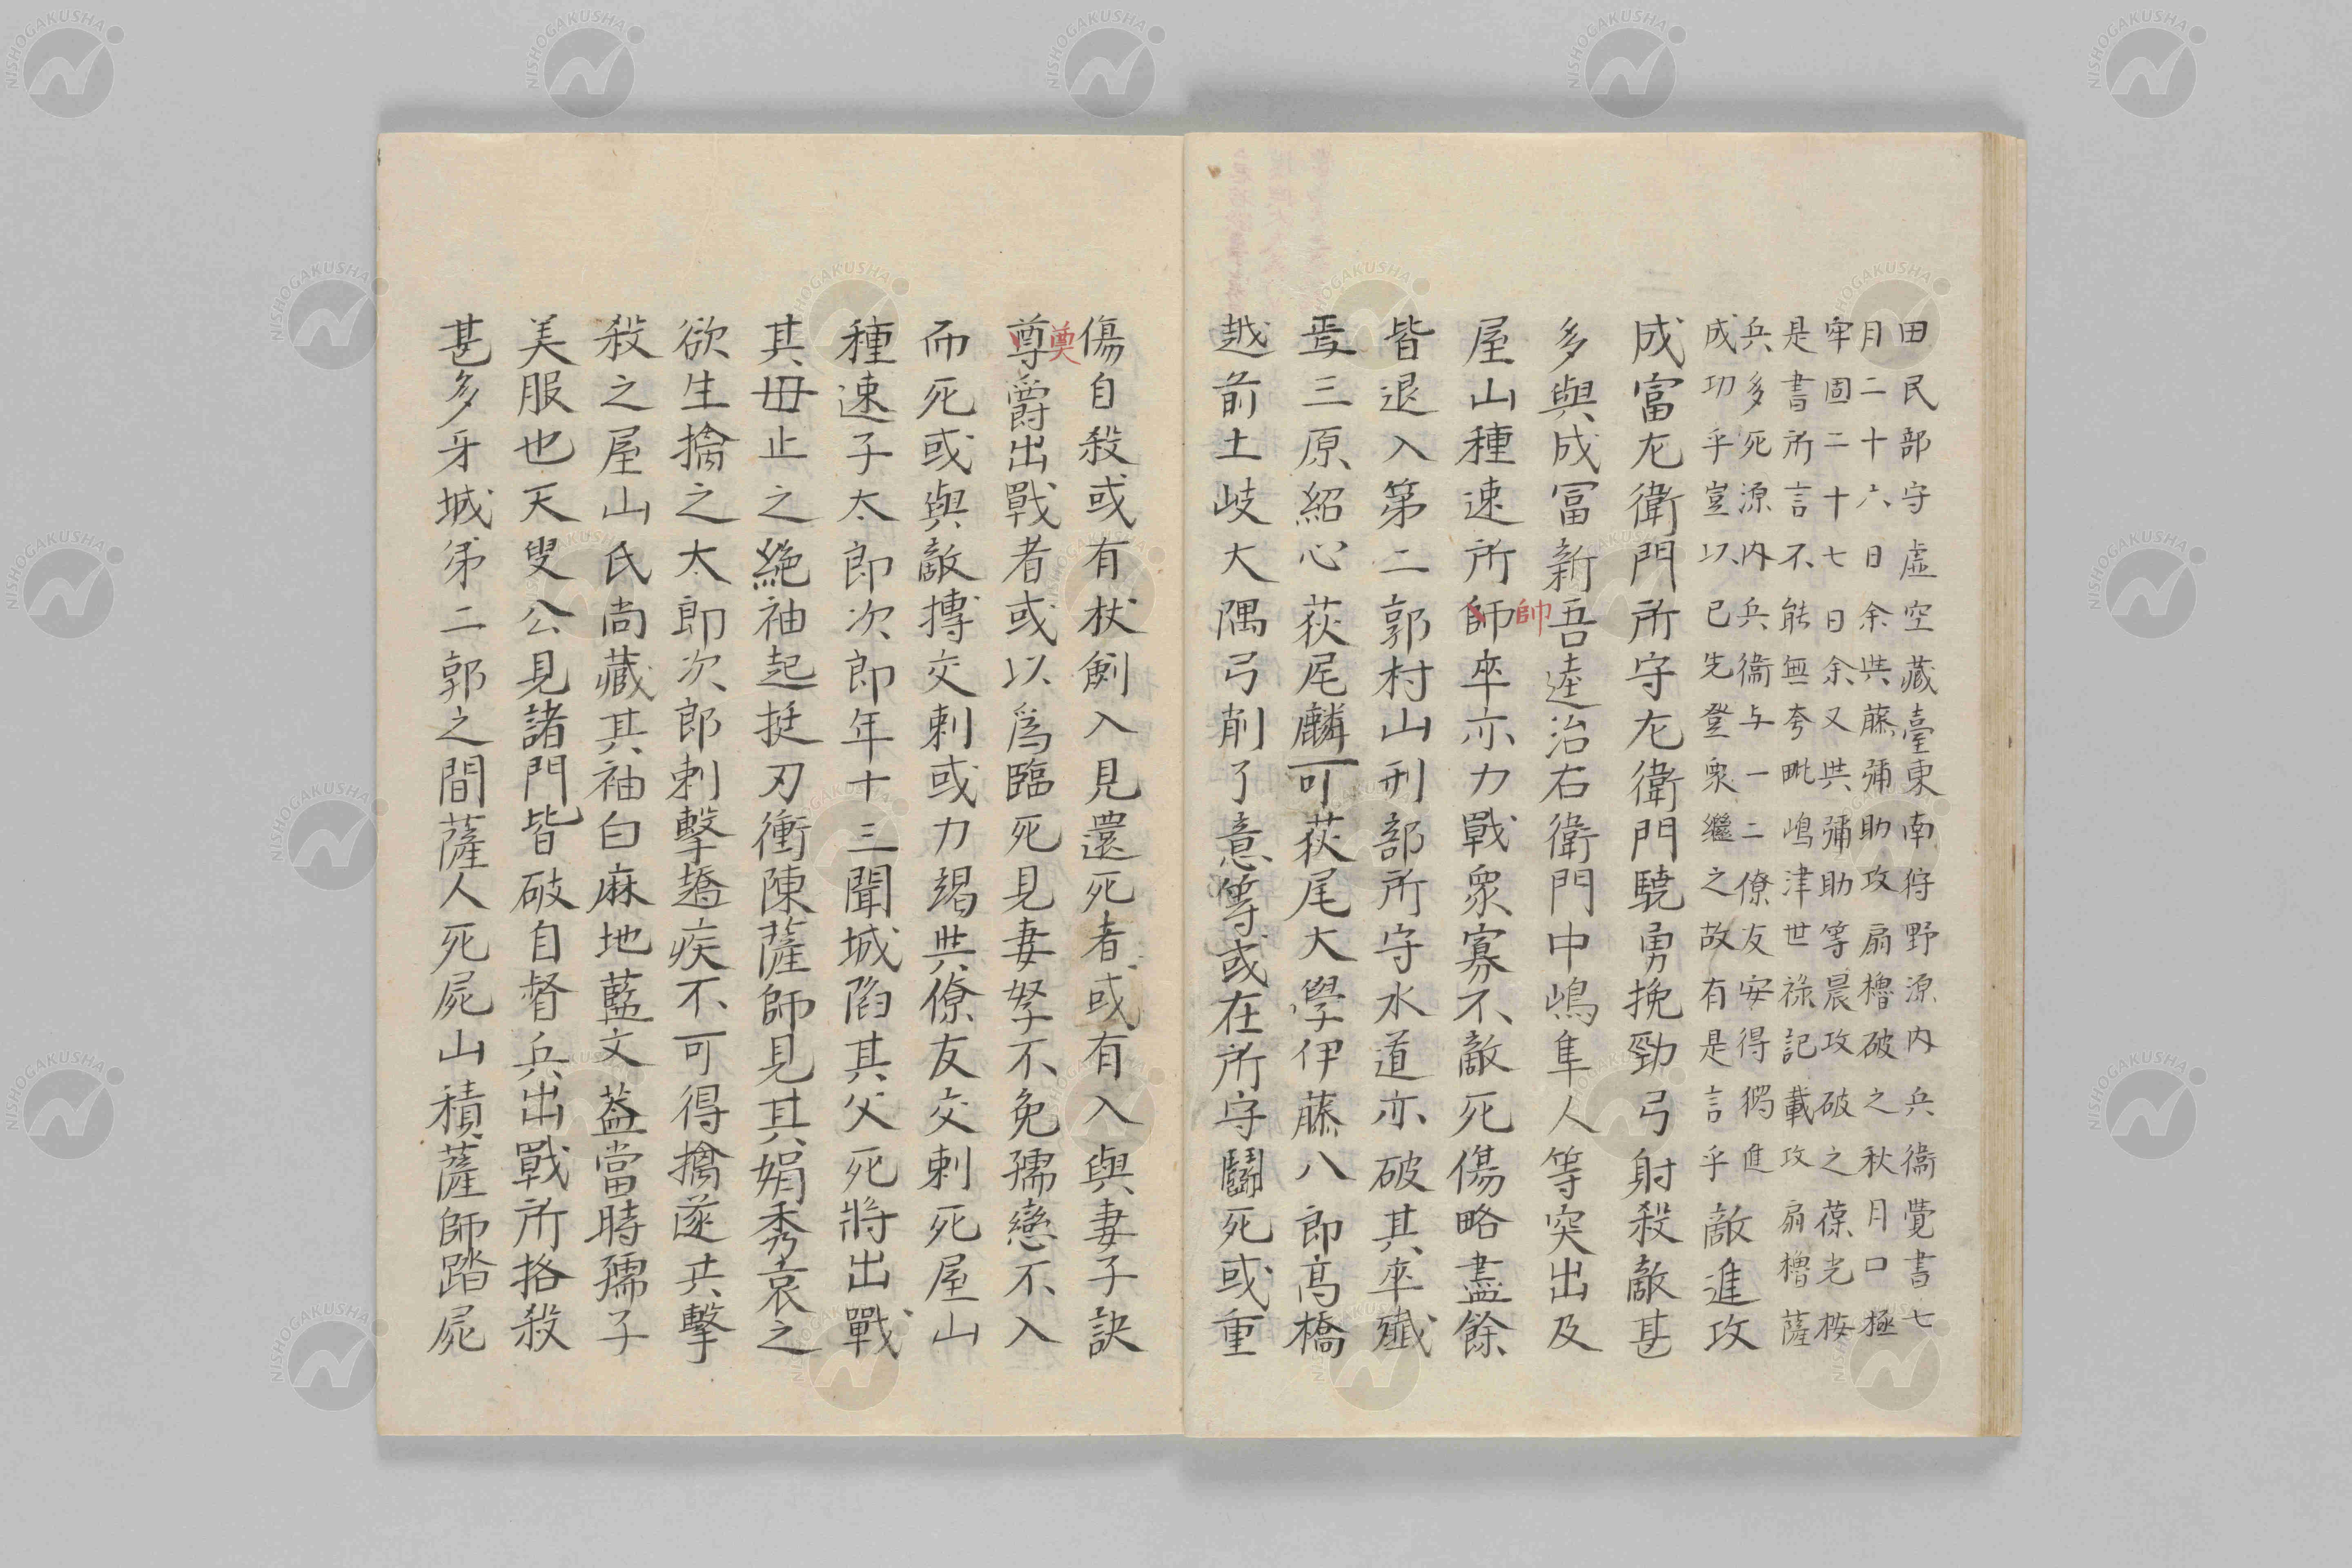 田民部守虛空藏臺東南狩野源内兵衞覺書七
月二十六日余與藤彌助攻扇櫓破之秋月口極
牢固二十七日余又與彌助等晨攻破之葆光桉
是書所言不能無夸毗嶋津世祿記載攻扇櫓薩
兵多死源内兵衞与一二僚友安得獨進
成功乎豈以已先登衆繼之故有是言乎敵進攻
成富尨衛門所守尨衛門驍勇挽勁弓射殺敵甚
多與成冨新吾逵治右衛門中嶋隼人等突出及
屋山種速所師卒亦力戰衆寡不敵死傷略盡餘
帥
皆退入第二郭村山刑部所守水道亦破其卒殲
焉三原紹心荻尾麟可荻尾大學伊藤八郎高橋
越前土岐大隅弓削了意等或在所守鬪死或重
傷自殺或有杖劍入見還死者或有入與妻子訣
奠
尊爵出戰者或以爲臨死見妻孥不免孺戀不入
而死或與敵摶交刺或力竭與僚友交刺死屋山
種速子太郎次郎年十三聞城陷其父死將出戰
其母止之絶袖起挺刃衝陳薩師見其娟秀哀之
欲生擒之太郎次郎刺擊趫疾不可得擒遂共擊
殺之屋山氏尚藏其袖白麻地藍文葢當時孺子
美服也天叟公見諸門皆破自督兵出戰所挌殺
甚多牙城第二郭之間薩人死屍山積薩師踏屍